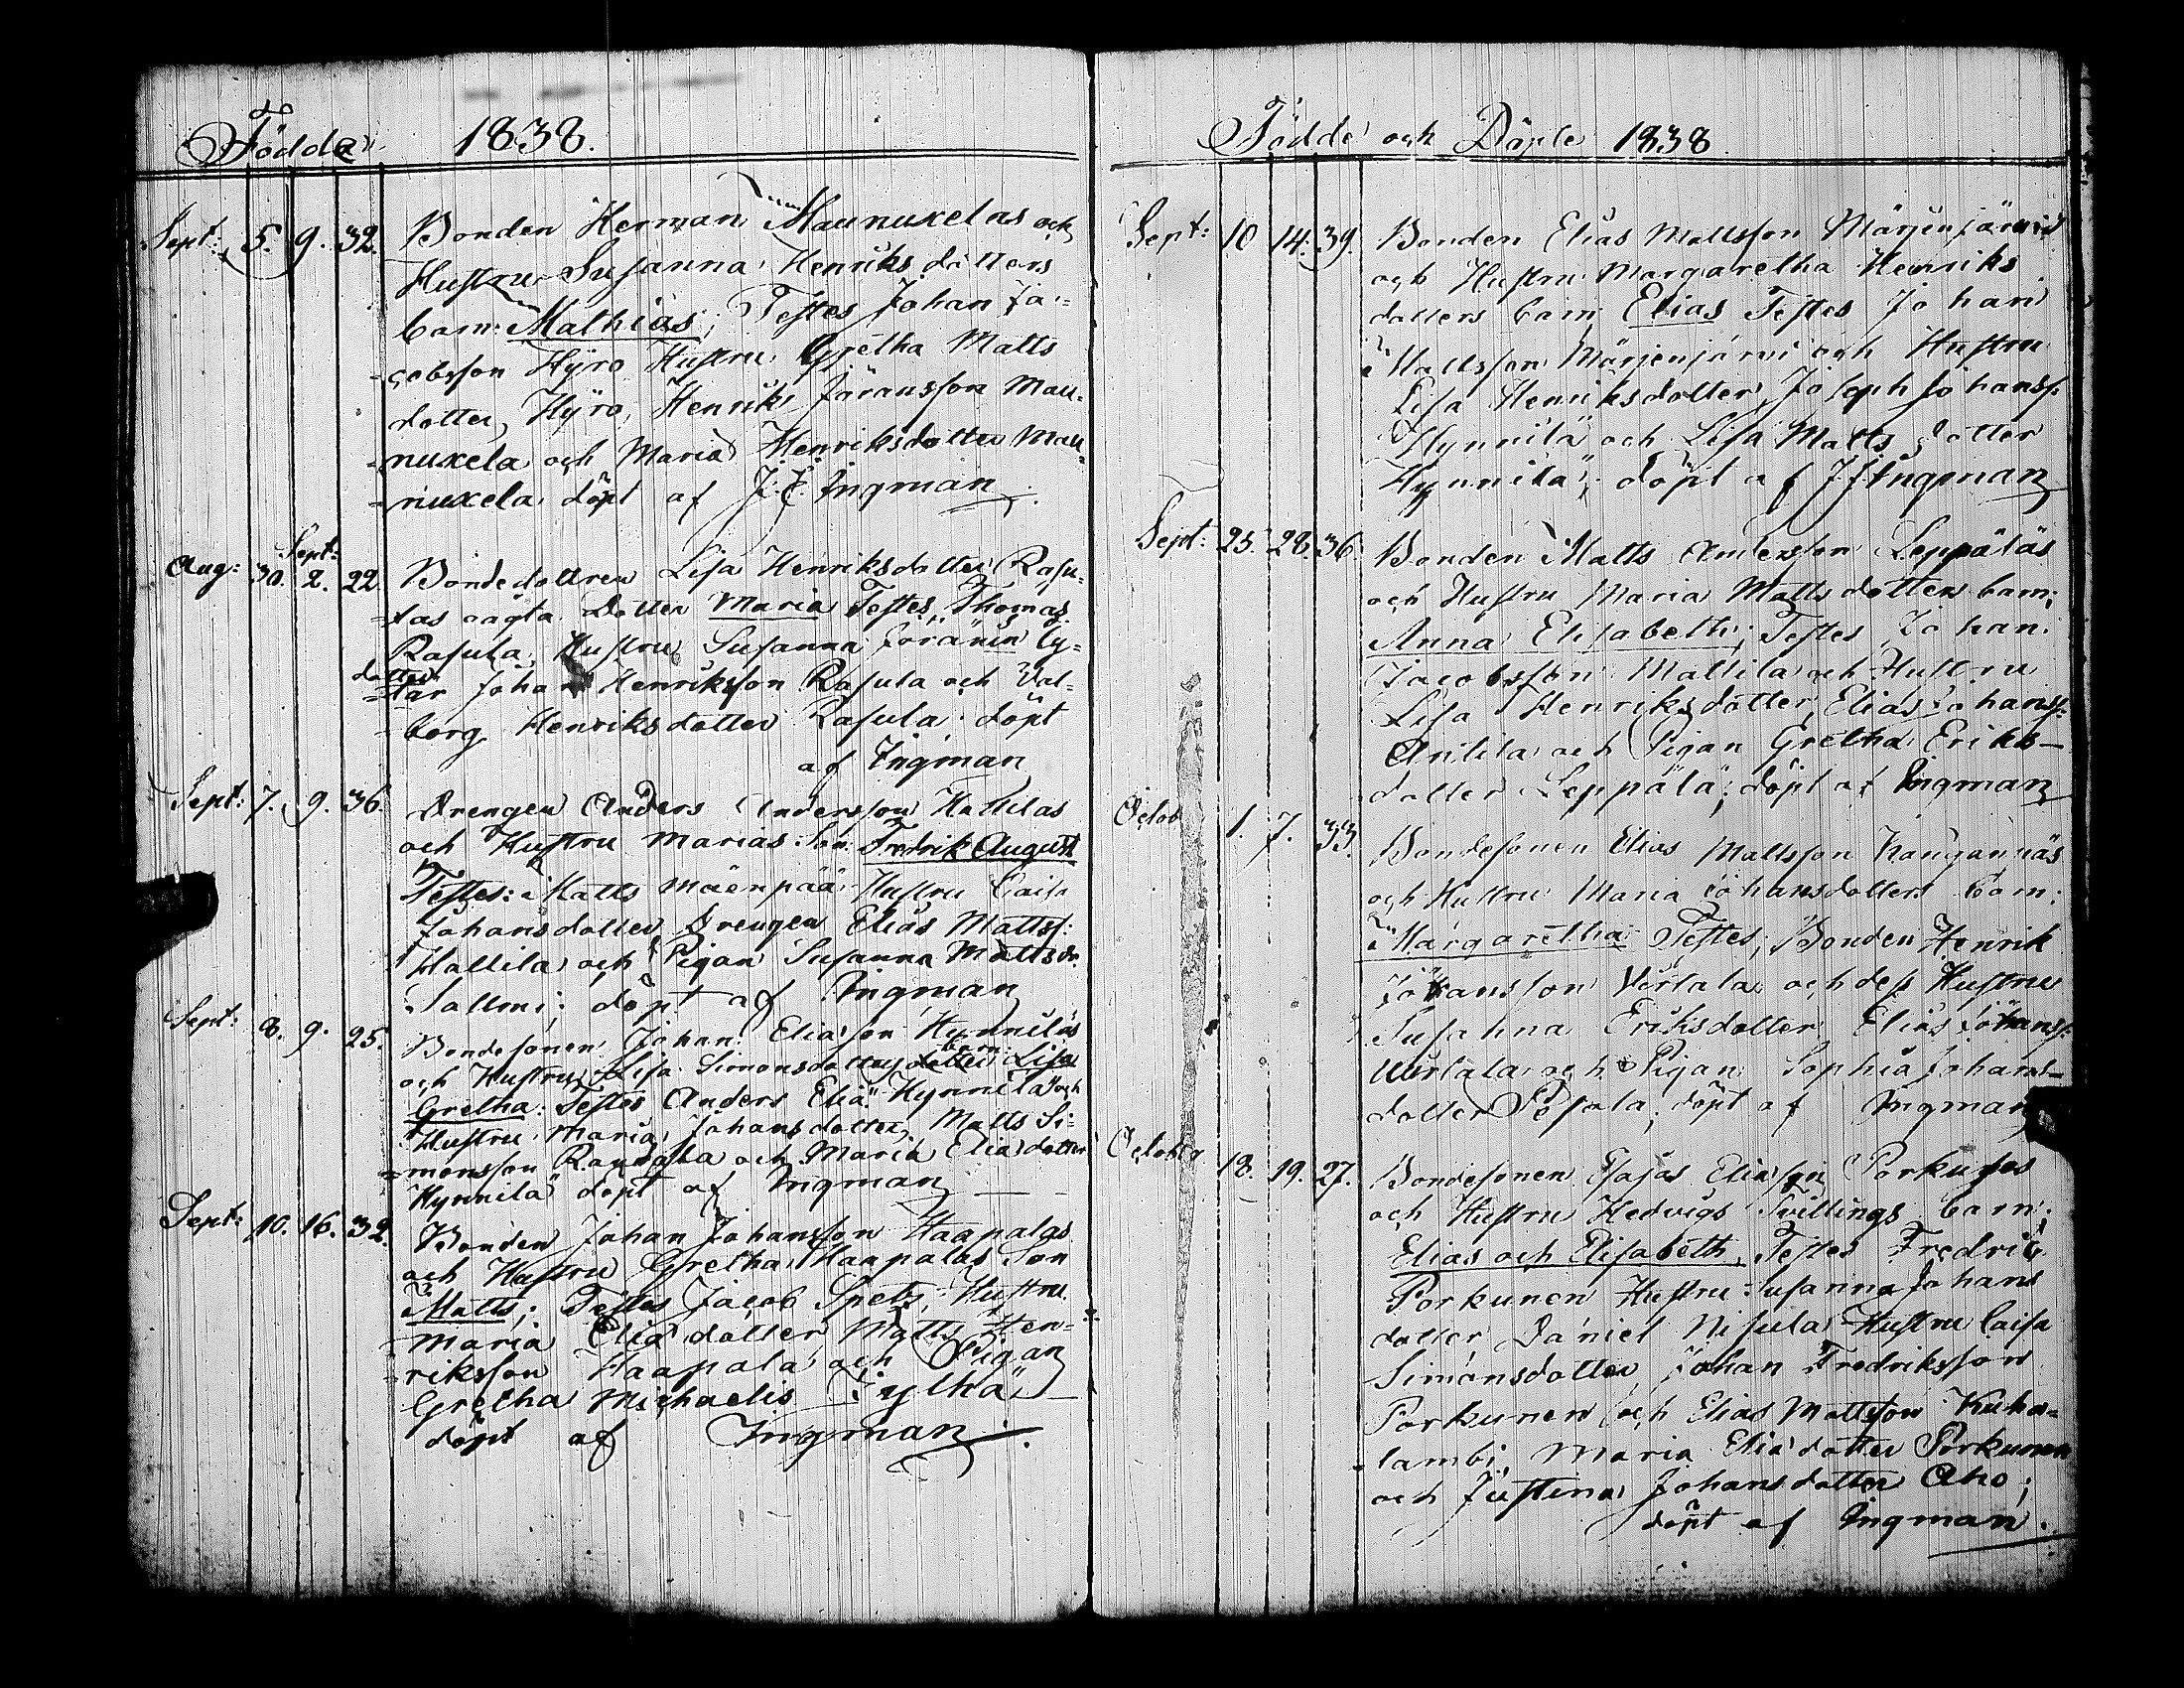 Födde 1838.
Sept: 5. 9. 32. Bonden Herman Maunuxelas och
Hustru Susanna Henriks dotters
barn: Mathias; Testes Johan Ja-
cobsson Hyro Hustru Gretha Matts
dotter Hyro, Henrik Göransson Mau-
nuxela och Maria Henriksdotter Mau-
nuxela döpt af J. F. Ingman.
Sept:
Aug: 30. 2. 22. Bondedottren Lisa Henriksdotter Rasu-
las oägta Dotter Maria Testes Thomas
Rasula, Hustru Susanna
dotter Johan Henriksson Rasula och Val-
borg Henriksdotter Rasula döpt
af Ingman
Sept: 7. 9. 36. Drengen Anders Andersson Hallilas
och Hustru Marias Son: Fredrik August
Testes: Matts Mäenpää Hustru Caisa
Johansdotter Drengen Elias Mattss:
Hallila och Pigan Susanna Mattsdr.
Salloni; döpt af Ingman
Sept: 8. 9. 25. Bondesonen Johan Eliasson Hynniläs
och Hustru Lisa Simonsdotters barn Lisa
Gretha: Testes Anders Elia: Hynnilä och
Hustru Maria Johansdotter, Matts Si-
monsson och Maria Eliadotter
Hynnilä döpt af Ingman
Sept: 10. 16. 32. Bonden Johan Johansson Haapalas
och Hustru Gretha Haapalas Son
Matts; Testes Jacob Spets, Hustru
Maria Elia dotter, Matts Hen-
riksson Haapala och Pigan
Gretha Michaelis Jylhä
döpt af Ingman.
Födde och Döpte 1838
Sept: 10 14. 39. Bonden Elias Mattsson Märjenjärvis
och Hustru Margaretha Henriks
dotters barn Elias Testes Johan
Mattsson Märjenjärvi och Hustru
Lisa Henriksdotter, Joseph Johanss:
Hynnilä och Lisa Matts dotter
Hynnilä; döpt af J F Ingman
Sept: 25. 28. 36. Bonden Matts Andersson Leppäläs
och Hustru Maria Matts dotters barn;
Anna Elisabeth; Testes Johan
Jacobsson Mattila och Hustru
Lisa Henriksdotter, Elias Johanss:
Antila och Pigan Gretha Eriks-
dotter Leppälä; döpt af Ingman
Octob 1. 7. 33. Bondesonen Elias Mattsson Kangannäs
och Hustru Maria Johansdotters barn:
Margaretha: Testes; Bonden Henrik
Johansson Virtala och dess Hustru
Susanna Eriksdotter, Elias Johanss:
Wirtala och Pigan Sophia Johans-
dotter Pesola; döpt af Ingman
October 18. 19. 27. Bondesonen Esajas Eliasson Porkuses
och Hustru Hedvigs Tvillings barn:
Elias och Elisabeth, Testes Fredric
Porkunen Hustru Susanna Johans
dotter, Daniel Nisula Hustru Caisa
Simonsdotter, Johan Fredriksson
Porkunen och Elias Mattsson Kuha-
lambi, Maria Eliä dotter Porkunen
och Justina Johansdotter Aho;
döpt af Ingman.